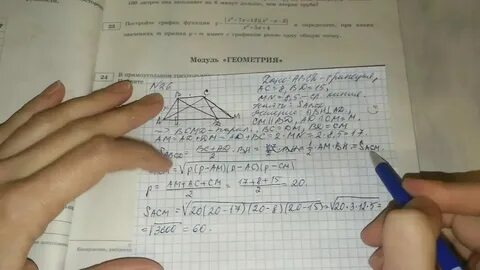 100 литров она заполняет на 6 минут дольше, чем вторая труба?
23 Постройте график функции y=
и определите, при каких
значениях m прямая y=m имеет с графиком ровно одну общую точку.
Модуль «ГЕОМЕТРИЯ»
24 В прямоугольном
№26
Дано: ABCD - трапеция,
AC=8, BD=15,
MN=8,5 - ср. линия.
Найти: SABCD.
Решение: BH⊥AD,
CM||BD, AD∩CM=M.
→ BCMD - паралл., BC=DM, BD=CM
AM=AD+DM=AD+BC=2·MN=2·8,5=17.
SABCD= BC+AD/2 · BH = · BH = 1/2 · AM · BH = SACM.
√p(p-AM)(p-AC)(p-CM)
p= AM+AC+CM/2 = 17+8+15/2 = 20.
SACM=√20(20-17)(20-8)(20-15)=√20·3·12·5=
=√3600=60.